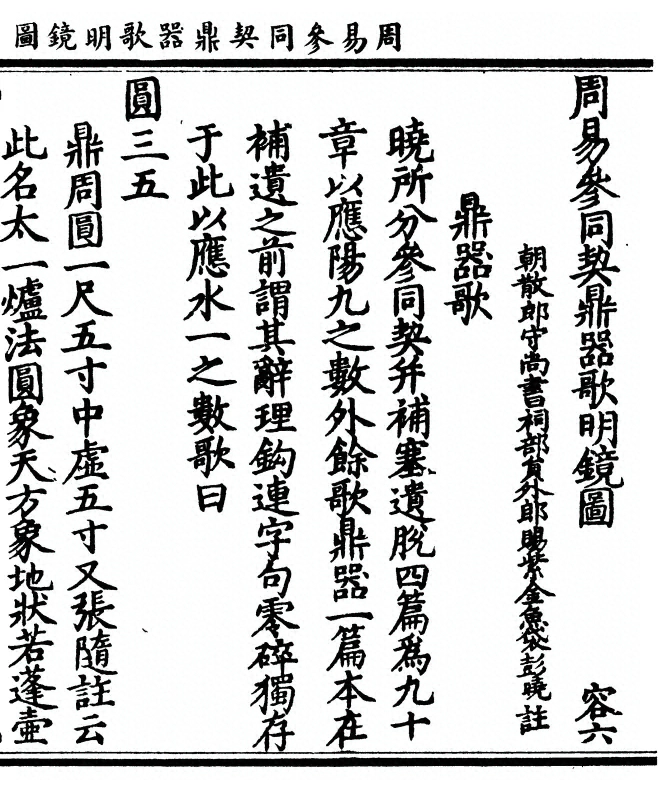 周易參同契鼎器歌明鏡圖
周易參同契鼎器歌明鏡圖　容六
朝散郎守尚書祠部員外郎賜紫金魚袋彭曉註
鼎器歌
曉所分參同契并補塞遺脫四篇爲九十
章以應陽九之數外餘歌鼎器一篇本在
補遺之前謂其辭理鈎連字句零碎獨存
于此以應水一之數歌曰
圓三五
鼎周圓一尺五寸中虛五寸又張隨註云
此名太一爐法圓象天方象地狀若蓬壺